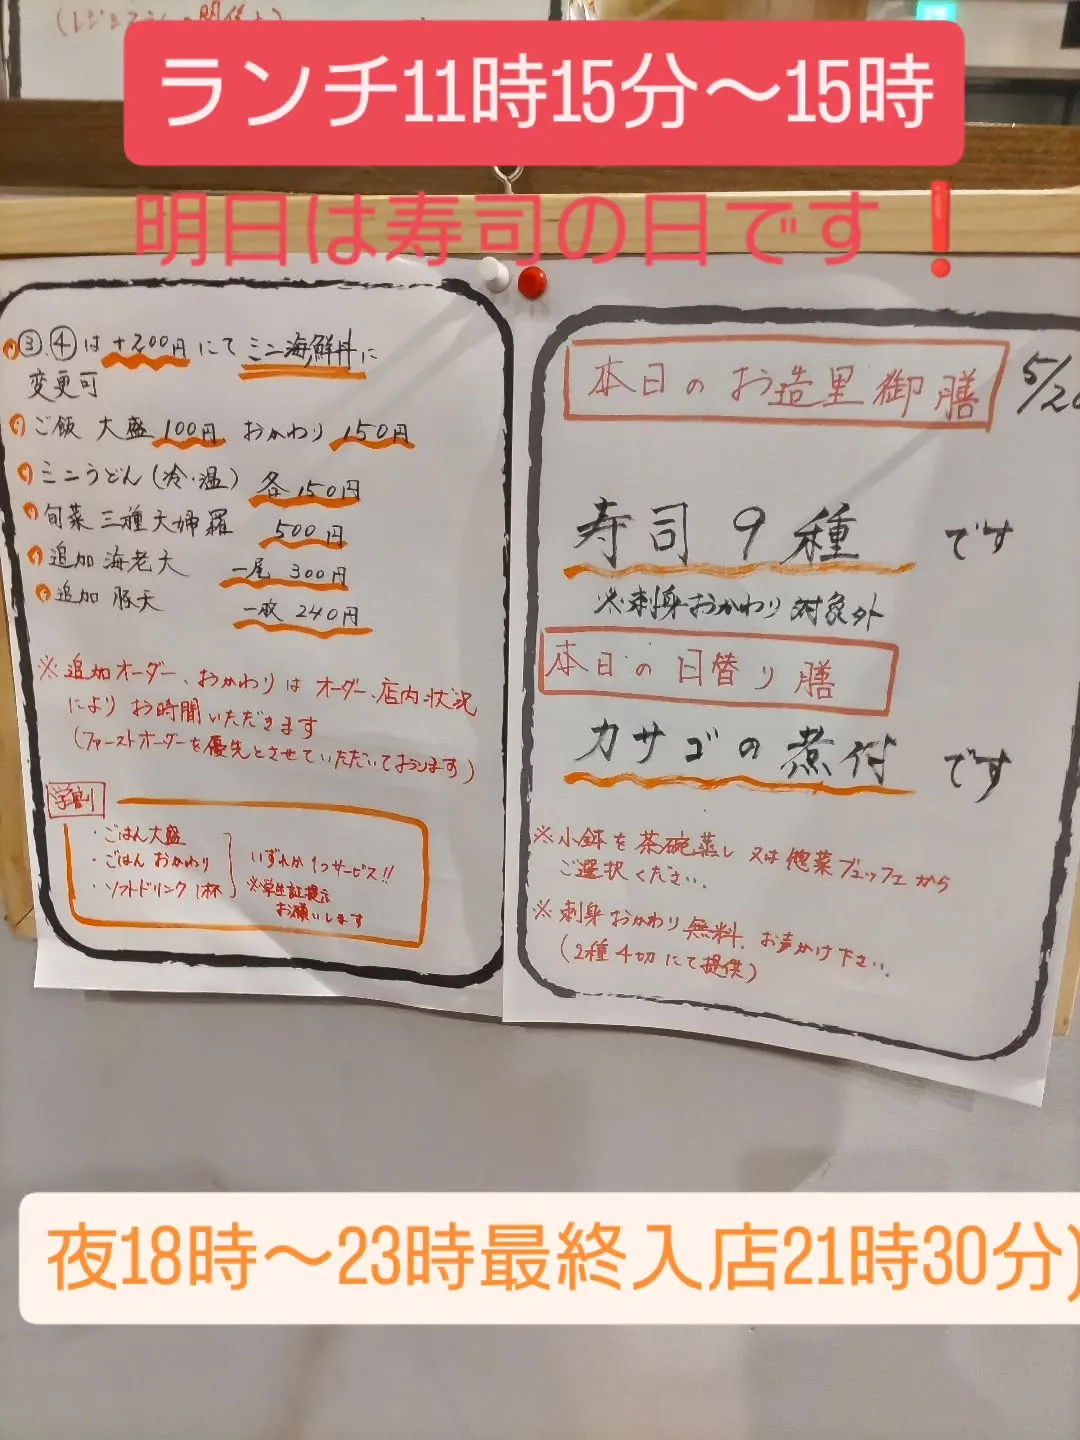 ランチ11時15分～15時
明日は寿司の日です❗
③.④は+200円にてミニ海鮮丼に
変更可
ご飯 大盛 100円 おかわり 150円
ミニうどん(冷・温) 各150円
旬菜三種天婦羅 500円
追加 海老天 一尾 300円
追加 豚天 一枚 240円
※追加オーダー、おかわりは オーダー、店内状況
によりお時間いただきます
(ファーストオーダーを優先とさせていただいております)
学割
・ごはん大盛
・ごはん おかわり
・ソフトドリンク1杯
いずれか1つサービス!!
※学生証提示
お願いします
本日のお造里御膳
5/20
寿司9種 です
※刺身おかわり対象外
本日の日替り膳
カサゴの煮付 です
※小鉢を茶碗蒸し 又は惣菜ブュッフェから
ご選択ください.
※刺身おかわり無料.お声かけ下さい.
(2種4切にて提供)
夜18時～23時最終入店21時30分)